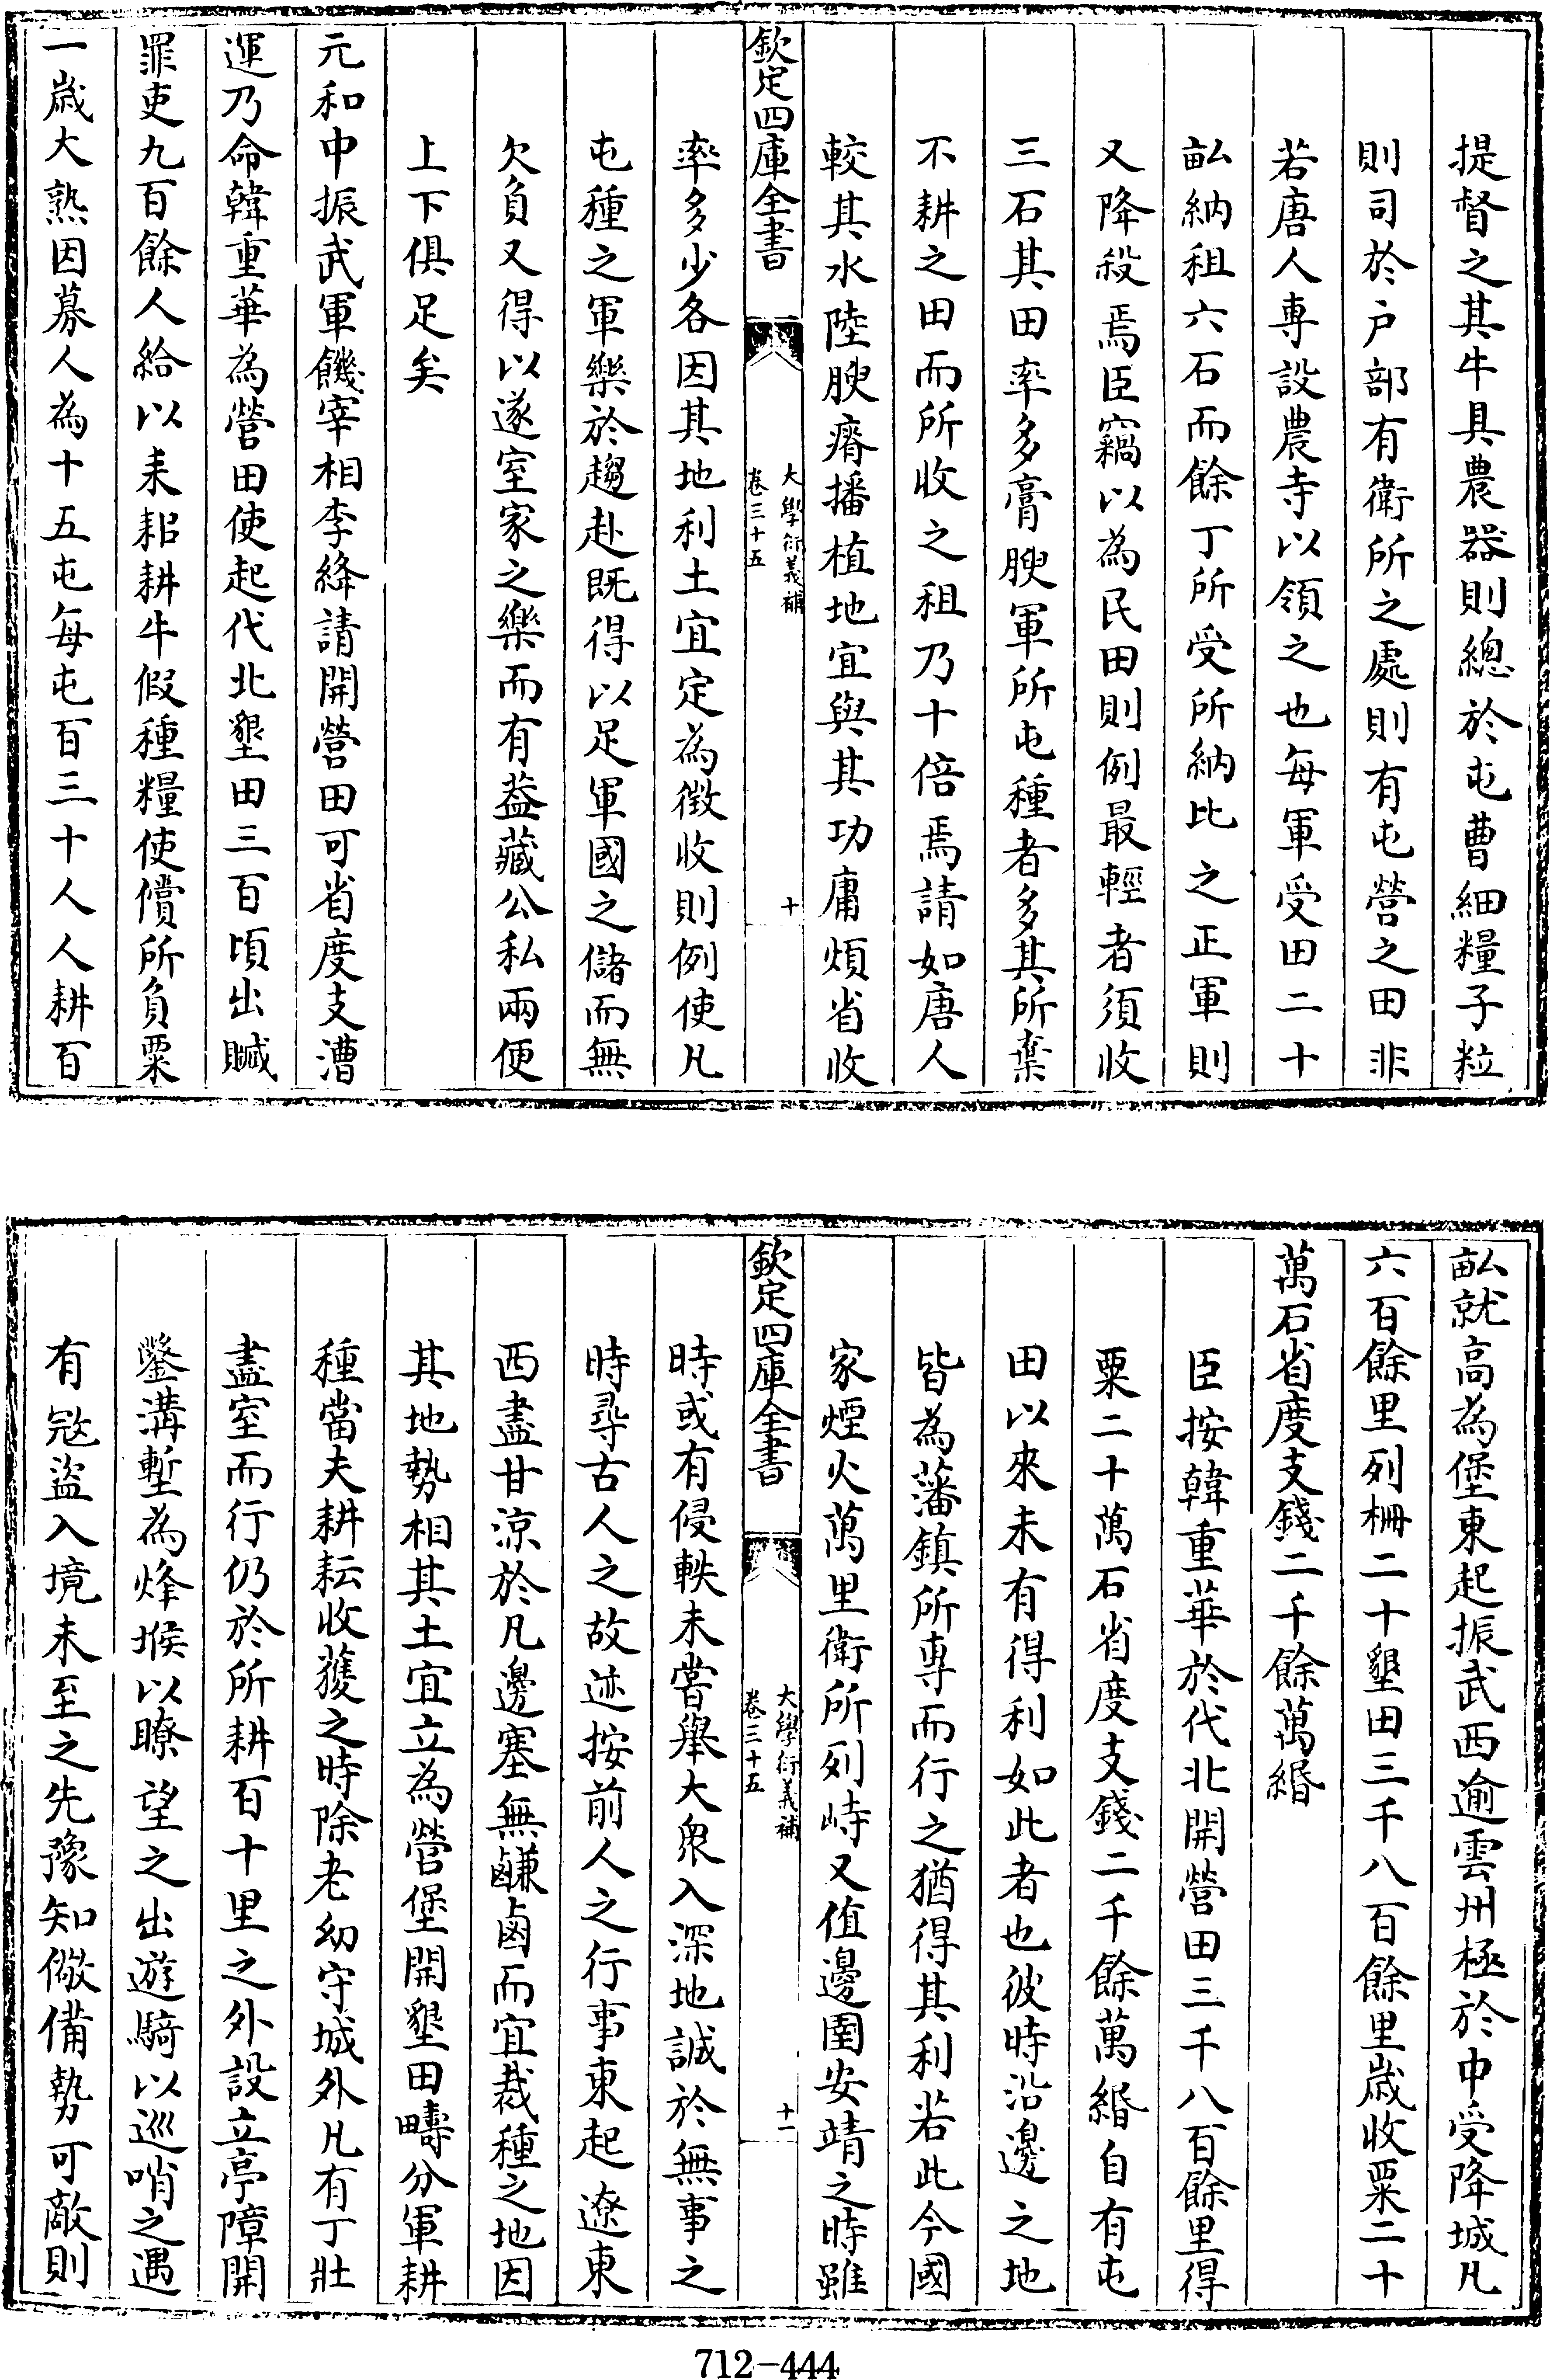 提督之其牛具農器則總於屯曹細糧子粒
則司於户部有衛所之處則有屯營之田非
若唐人專設農寺以領之也每軍受田二十
畝納租六石而餘丁所受所納比之正軍則
又降殺焉臣竊以為民田則例最輕者須收
三石其田率多膏腴軍所屯種者多其所棄
不耕之田而所收之租乃十倍焉請如唐人
較其水陸腴瘠播植地宜與其功庸煩省收
欽定四庫全書
大學衍義補
卷三十五
十
率多少各因其地利土宜定為徴收則例使凡
屯種之軍樂於趨赴既得以足軍國之儲而無
欠負又得以遂室家之樂而有葢藏公私兩便
上下俱足矣
元和中振武軍饑宰相李絳請開營田可省度支漕
運乃命韓重華為營田使起代北墾田三百頃出贓
罪吏九百餘人給以耒耜耕牛假種糧使償所負粟
一歲大熟因募人為十五屯每屯百三十人人耕百
畝就高為堡東起振武西逾雲州極於中受降城凡
六百餘里列柵二十墾田三千八百餘里歲收粟二十
萬石省度支錢二千餘萬緡
臣按韓重華於代北開營田三千八百餘里得
粟二十萬石省度支錢二千餘萬緡自有屯
田以來未有得利如此者也彼時沿邊之地
皆為藩鎮所專而行之猶得其利若此今國
家煙火萬里衛所列峙又值邊圉安靖之時雖
欽定四庫全書
大學衍義補
卷三十五
十一
時或有侵軼未嘗舉大衆入深地誠於無事之
時尋古人之故迹按前人之行事東起遼東
西盡甘涼於凡邊塞無鹻鹵而宜栽種之地因
其地勢相其土宜立為營堡開墾田疇分軍耕
種當夫耕耘收穫之時除老幼守城外凡有丁壯
盡室而行仍於所耕百十里之外設立亭障開
鑿溝塹為烽堠以瞭望之出遊騎以巡哨之遇
有宼盜入境未至之先豫知儆備勢可敵則
712-444